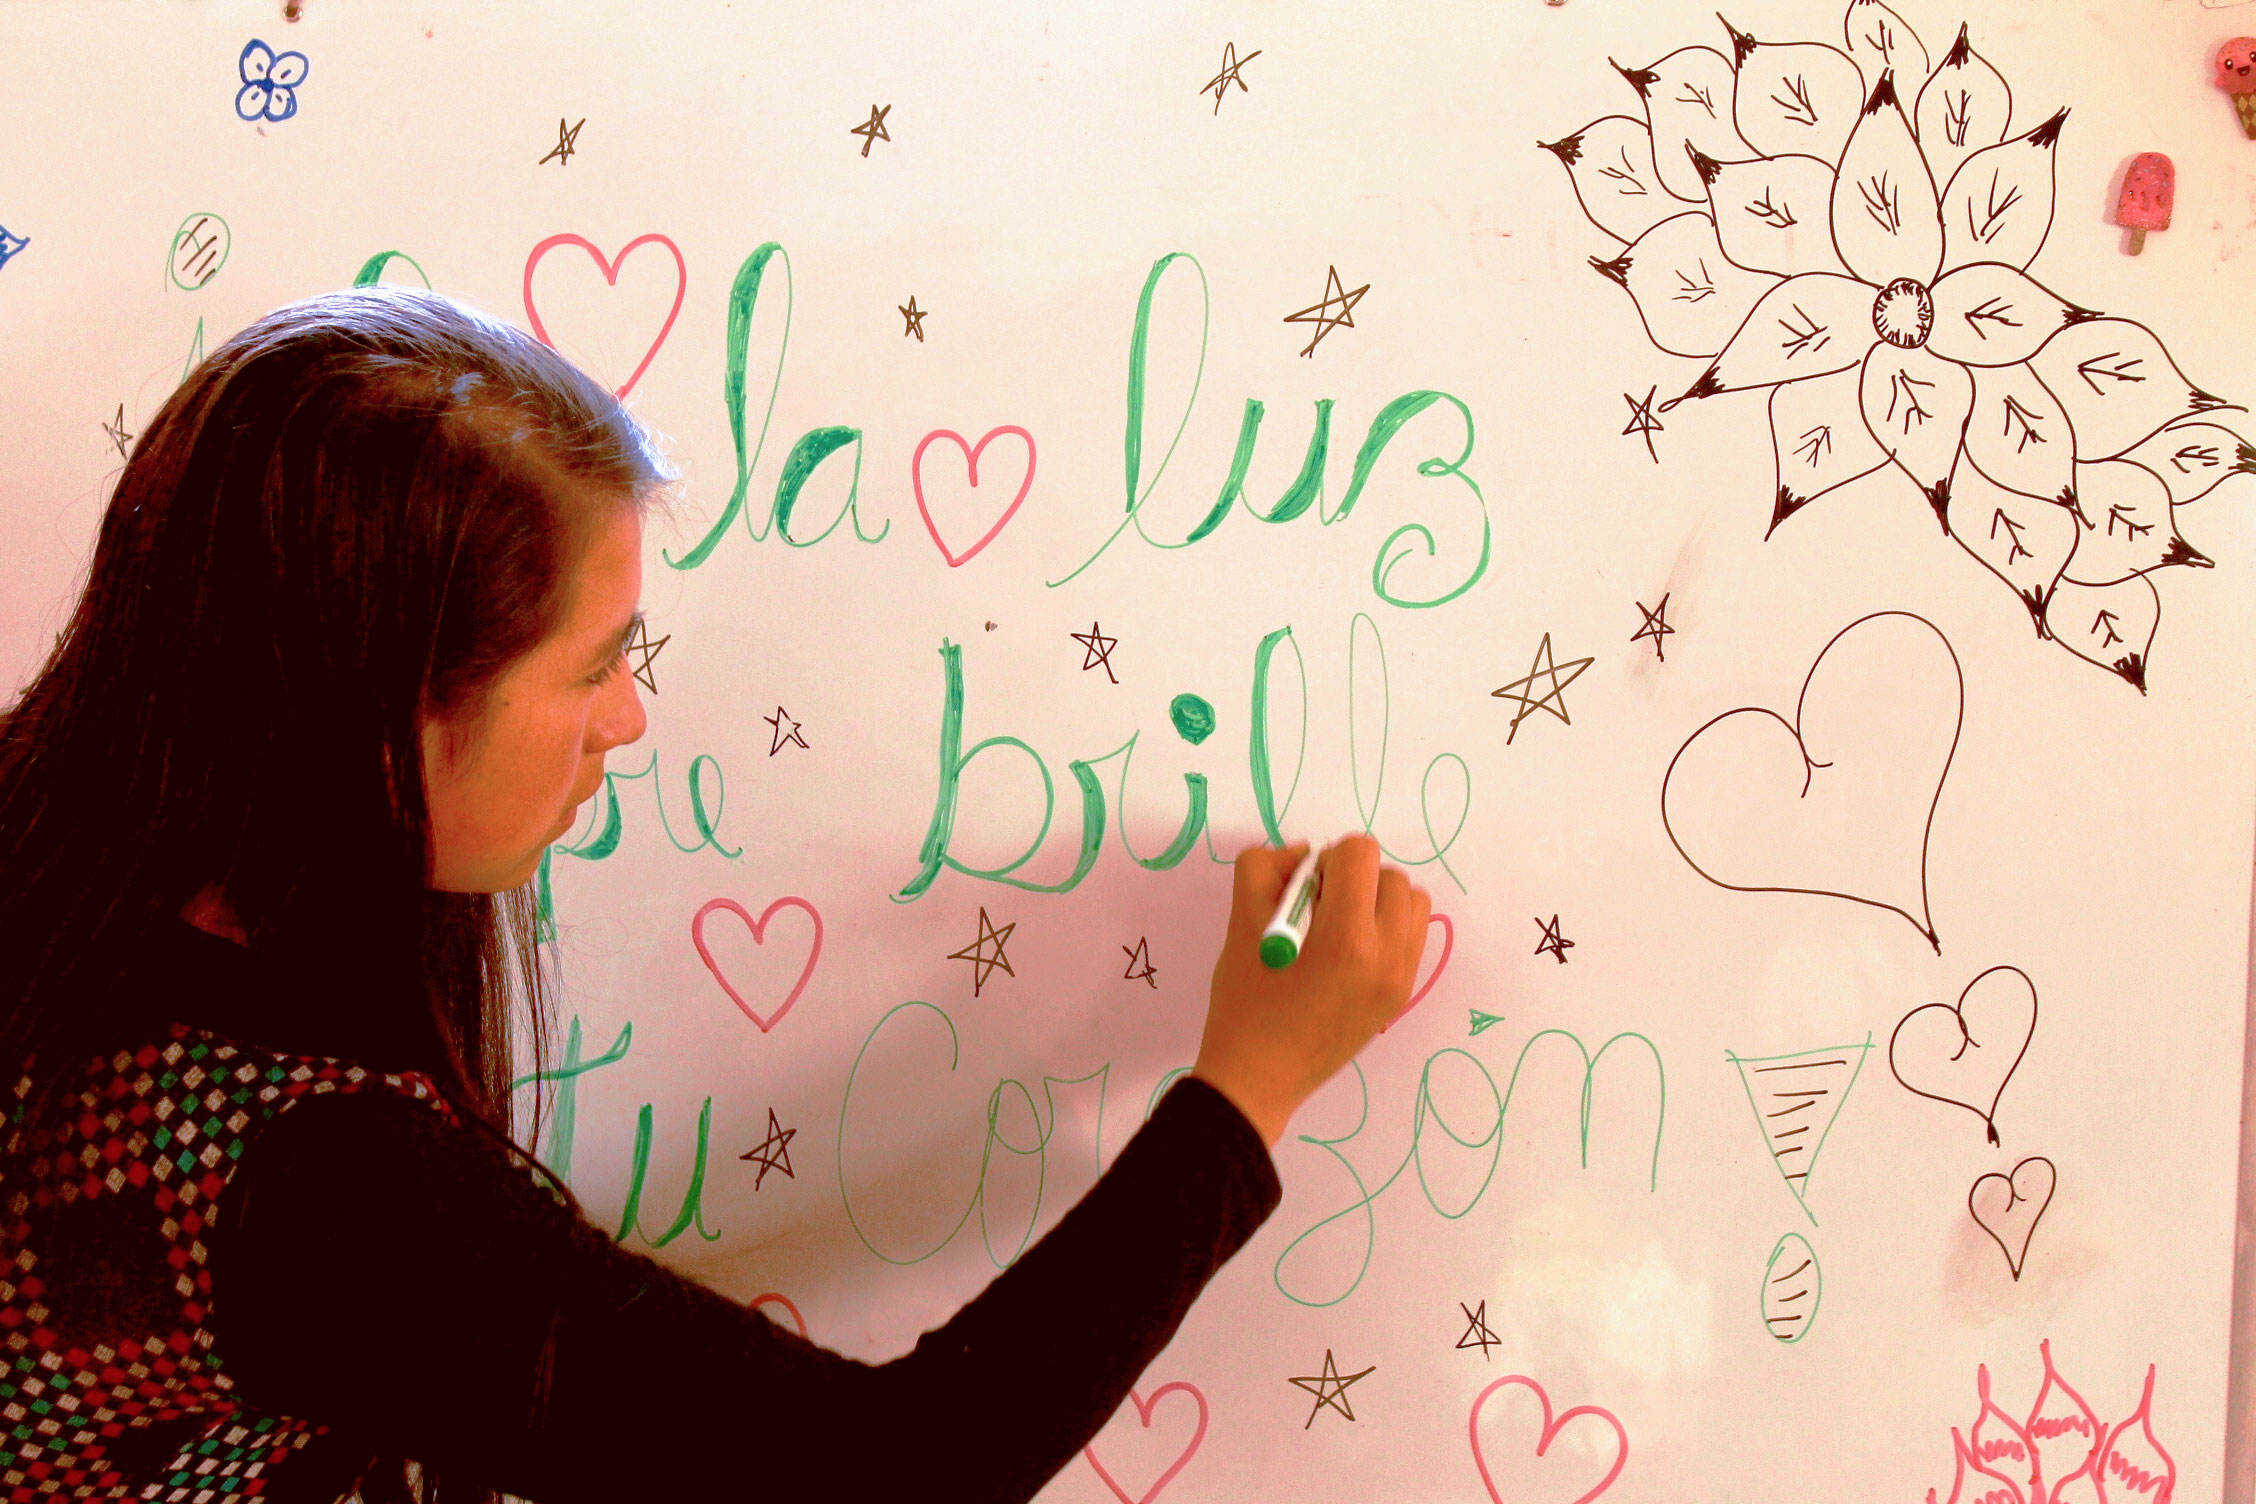 ¡ la luz
pre brille
tu Corazón!